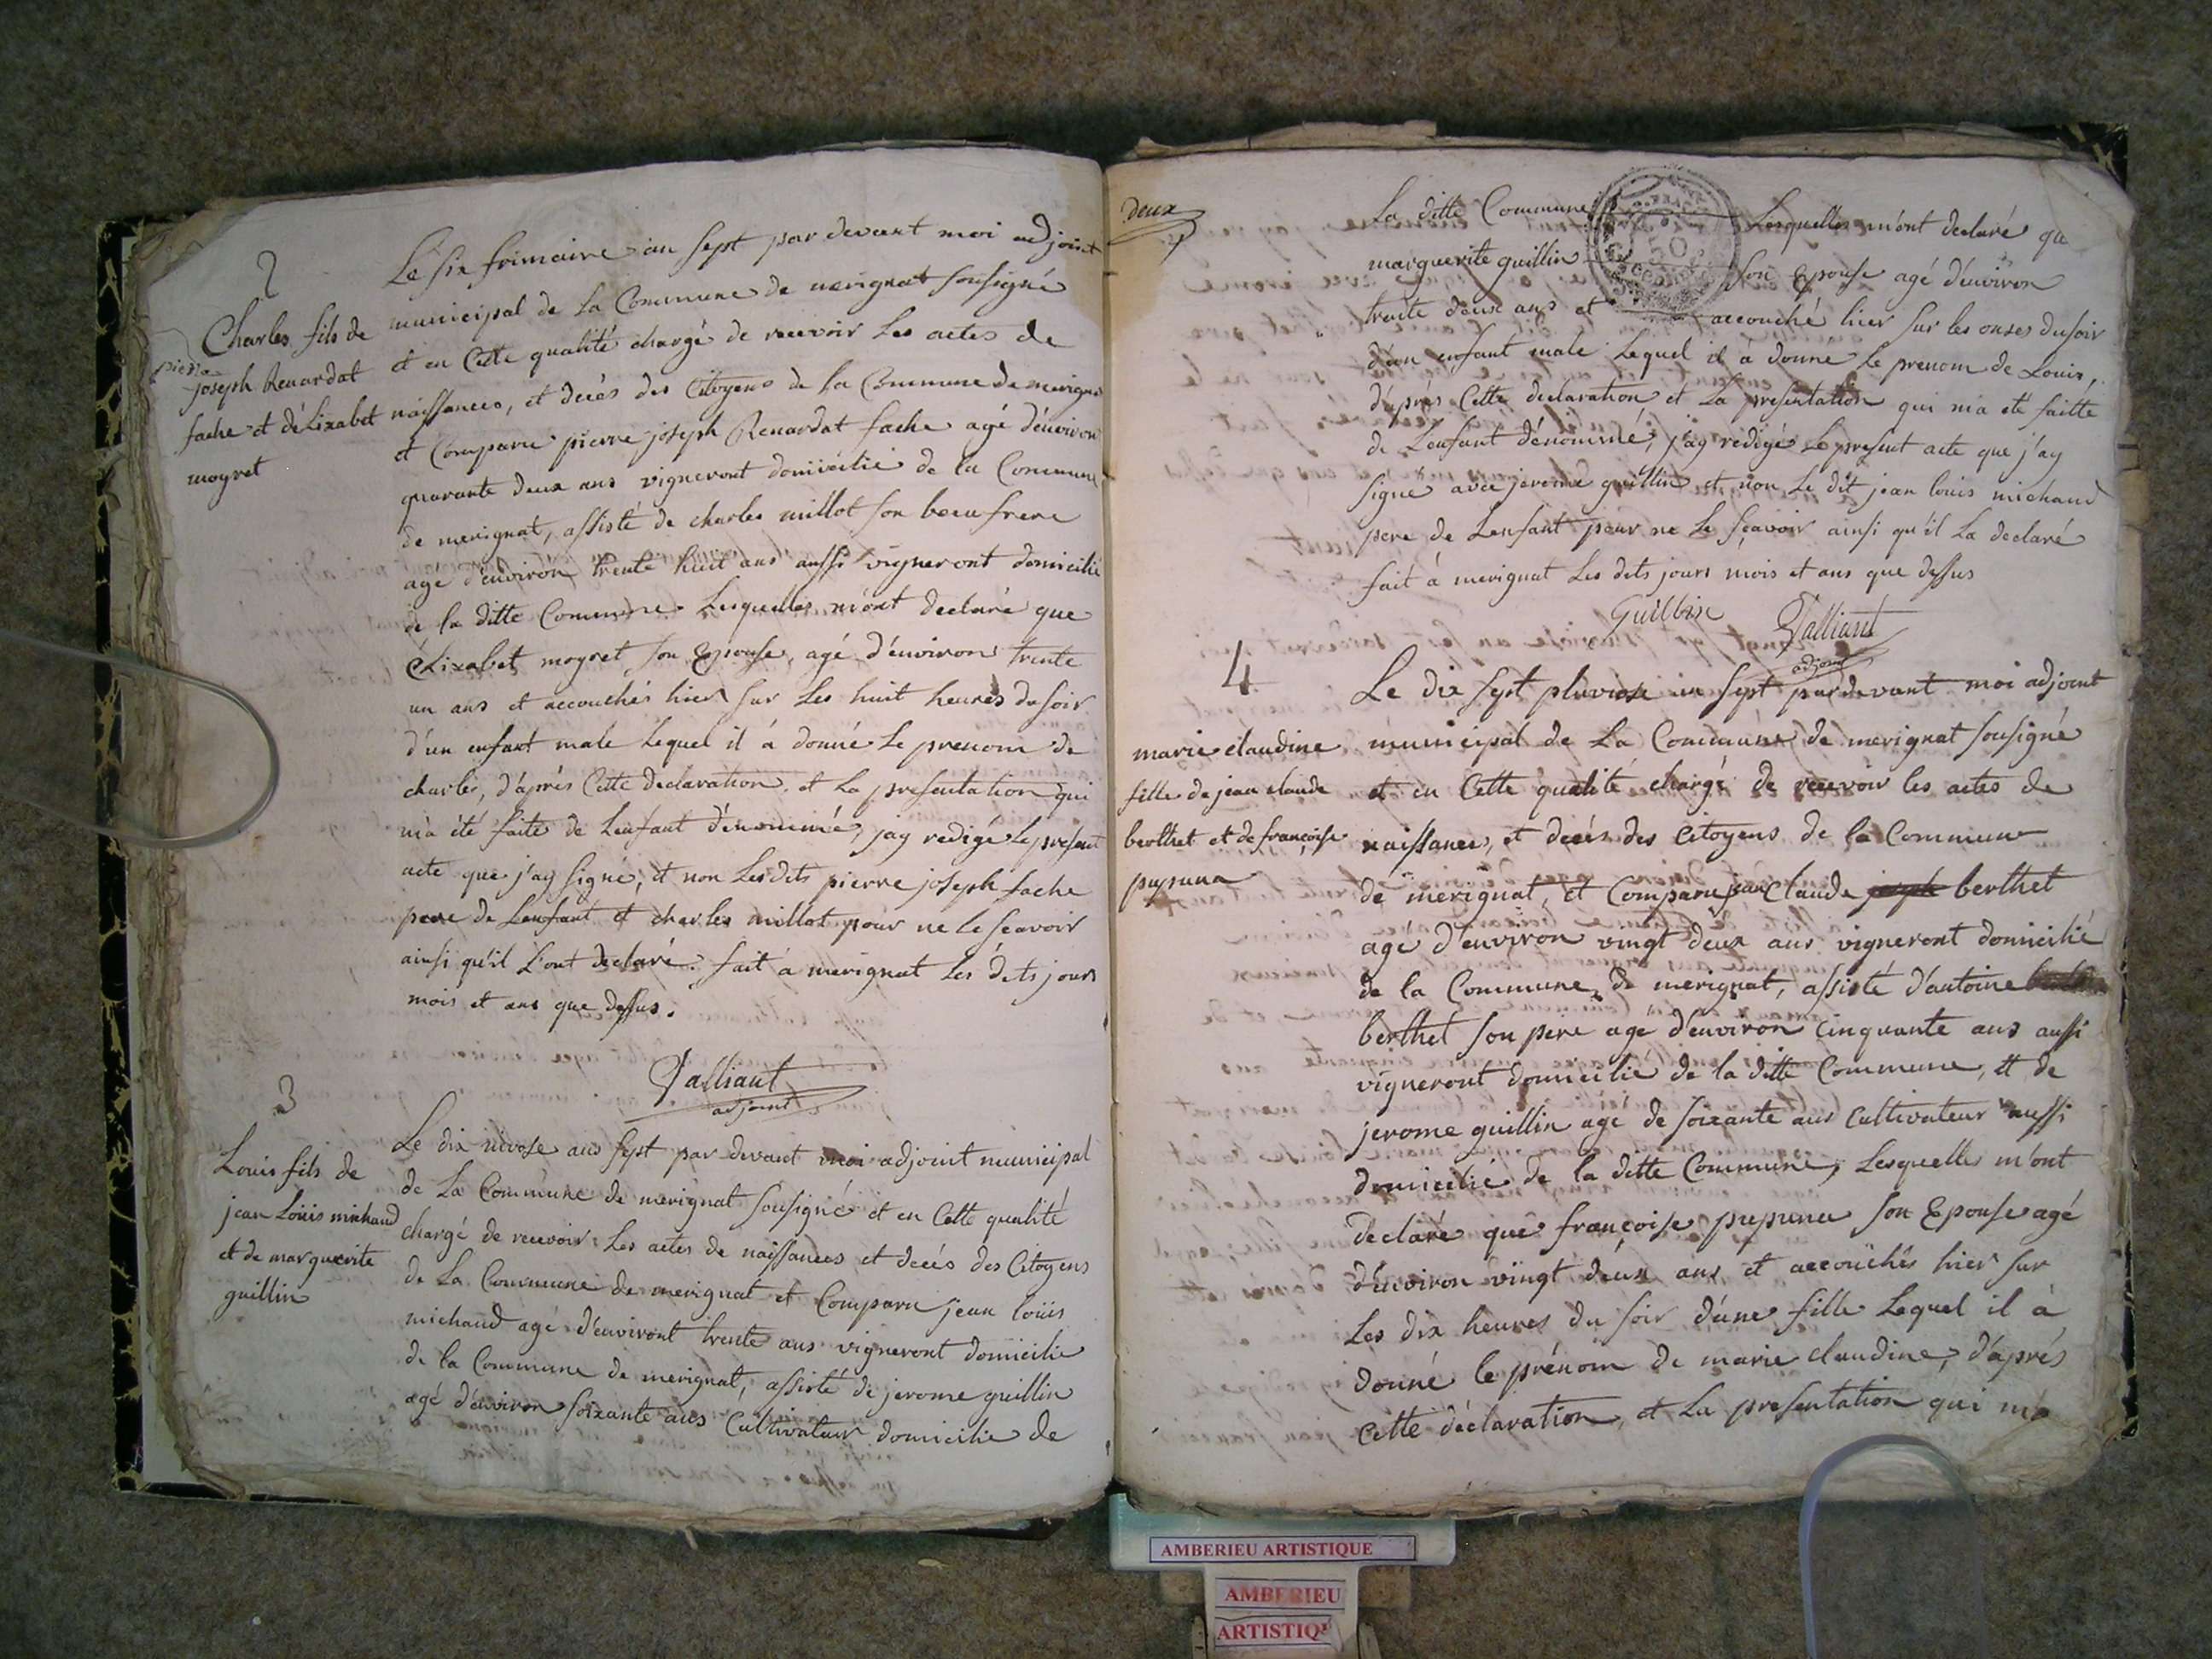 2
Charles fils de
pierre
joseph Renardat
fache et d'Elizabet
moyret
Le six frimaire an sept par devant moi adjoint
municipal de la Commune de merignat sousigné
et en Cette qualité chargé de recevoir Les actes de
naissances, et decés des Citoyens de la Commune de merignat
et Comparu pierre joseph Renardat fache agé d'environ
quarante deux ans vigneront domicilié de la Commune
de merignat, assisté de charles millot son beau frere
agé d'environ trente huit ans aussi vigneront domicilié
de la ditte Commune Lesquelles m'ont declaré que
Elizabet moyret son Epouse, agé d'environ trente
un ans et accouchés hier sur Les huit heures du soir
d'un enfant male Lequel il à donné Le prenom de
charles, d'aprés Cette declaration, et La presentation qui
m'a été faite de Lenfant dénommé, jay redigé Le present
acte que j'ay signé, et non Les dits pierre joseph fache
pere de Lenfant et charles millot pour ne le scavoir
ainsi qu'il L'ont declaré. fait à merignat Les dits jours
mois et ans que dessus.
Valliant
adjoint
3
Louis fils de
jean Loüis michaud
et de marguerite
guillin
Le dix nivose ans sept par devant moi adjoint municipal
de La Commune de merignat sousigné et en Cette qualité
chargé de recevoir Les actes de naissances et decés des Citoyens
de La Commune de merignat et Comparu jean loüis
michaud agé d'environt trente ans vigneront domicilié
de la Commune de merignat, assisté de jerome guillin
agé d'environ soixante ans Cultivateur domicilié de
deux
La ditte Commune Lesquelles m'ont declaré que
marguerite guillin son Epouse agé d'environ
trente deux ans et accouché hier sur les onzes du soir
d'un enfant male Lequel il à donné Le prenom de Louis,
d'aprés Cette declaration et La presentation qui m'a été faitte
de Lenfant dénommé, j'ay redigé Le present acte que j'ay
signé avec jerome guillin et non Le dit jean louis michaud
pere de Lenfant pour ne Le scavoir ainsi qu'il La declaré
fait à merignat Les dits jours mois et ans que dessus
Guillin Valliant
adjoint
4
marie claudine
fille de jean claude
berthet et de françoise
pupuna
Le dix sept pluviose an sept pardevant moi adjoint
municipal de La Commune de merignat sousigné
et en Cette qualité chargé de recevoir les actes de
naissances, et decés des Citoyens de la Commune
de merignat, et Comparu jean Claude joseph berthet
agé d'environ vingt deux ans vigneront domicilié
de la Commune, de merignat, assisté d'antoine
berthet son pere agé d'environ cinquante ans aussi
vigneront domicilié de la ditte Commune, et de
jerome guillin agé de soixante ans Cultivateur aussi
domicilié de la ditte Commune, Lesquelles m'ont
declaré que françoise pupuna son Epouse agé
d'environ vingt deux ans et accouchés hier sur
Les dix heures du soir d'une fille Lequel il à
donné le prénom de marie claudine, d'aprés
Cette déclaration, et La presentation qui m'a
AMBERIEU ARTISTIQUE
AMBERIEU
ARTISTIQ